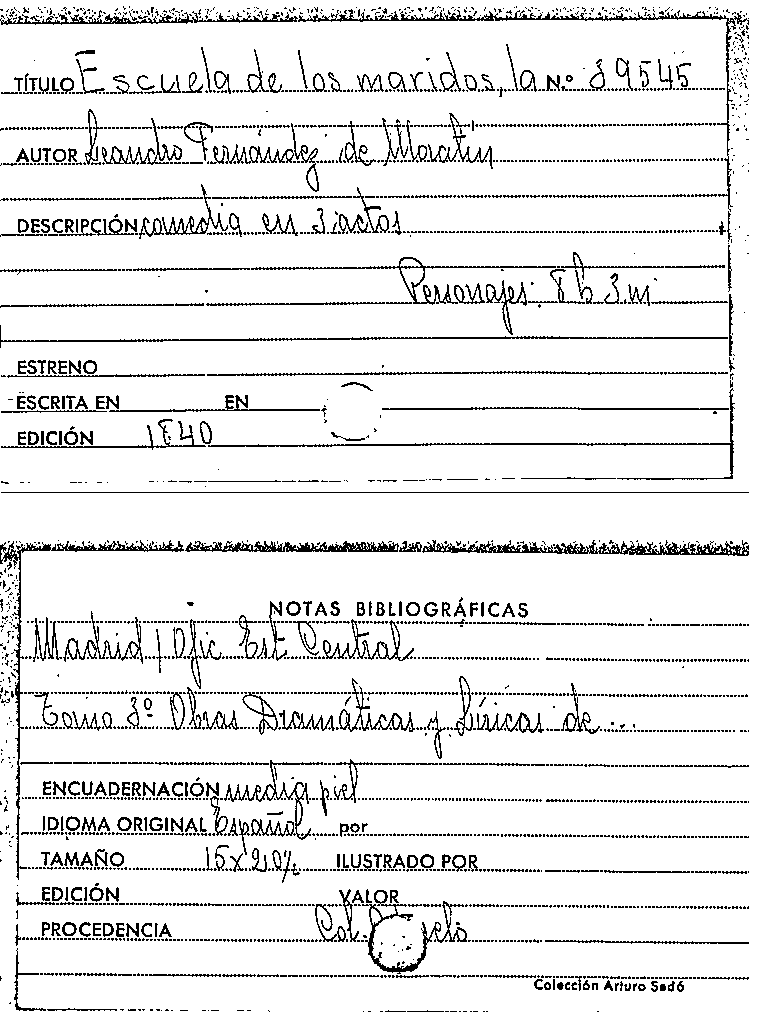 TÍTULO Escuela de los maridos, la N.º 89545
AUTOR Leandro Fernández de Moratín
DESCRIPCIÓN comedia en 3 actos
Personajes: 8 h 3 m
ESTRENO
ESCRITA EN EN
EDICIÓN 1840
NOTAS BIBLIOGRÁFICAS
Madrid / Ofic Est Central
Tomo 3º Obras Dramáticas y Líricas de ...
ENCUADERNACIÓN media piel
IDIOMA ORIGINAL Español por
TAMAÑO 15x210% ILUSTRADO POR
EDICIÓN VALOR
PROCEDENCIA Col.
Colección Arturo Sedó